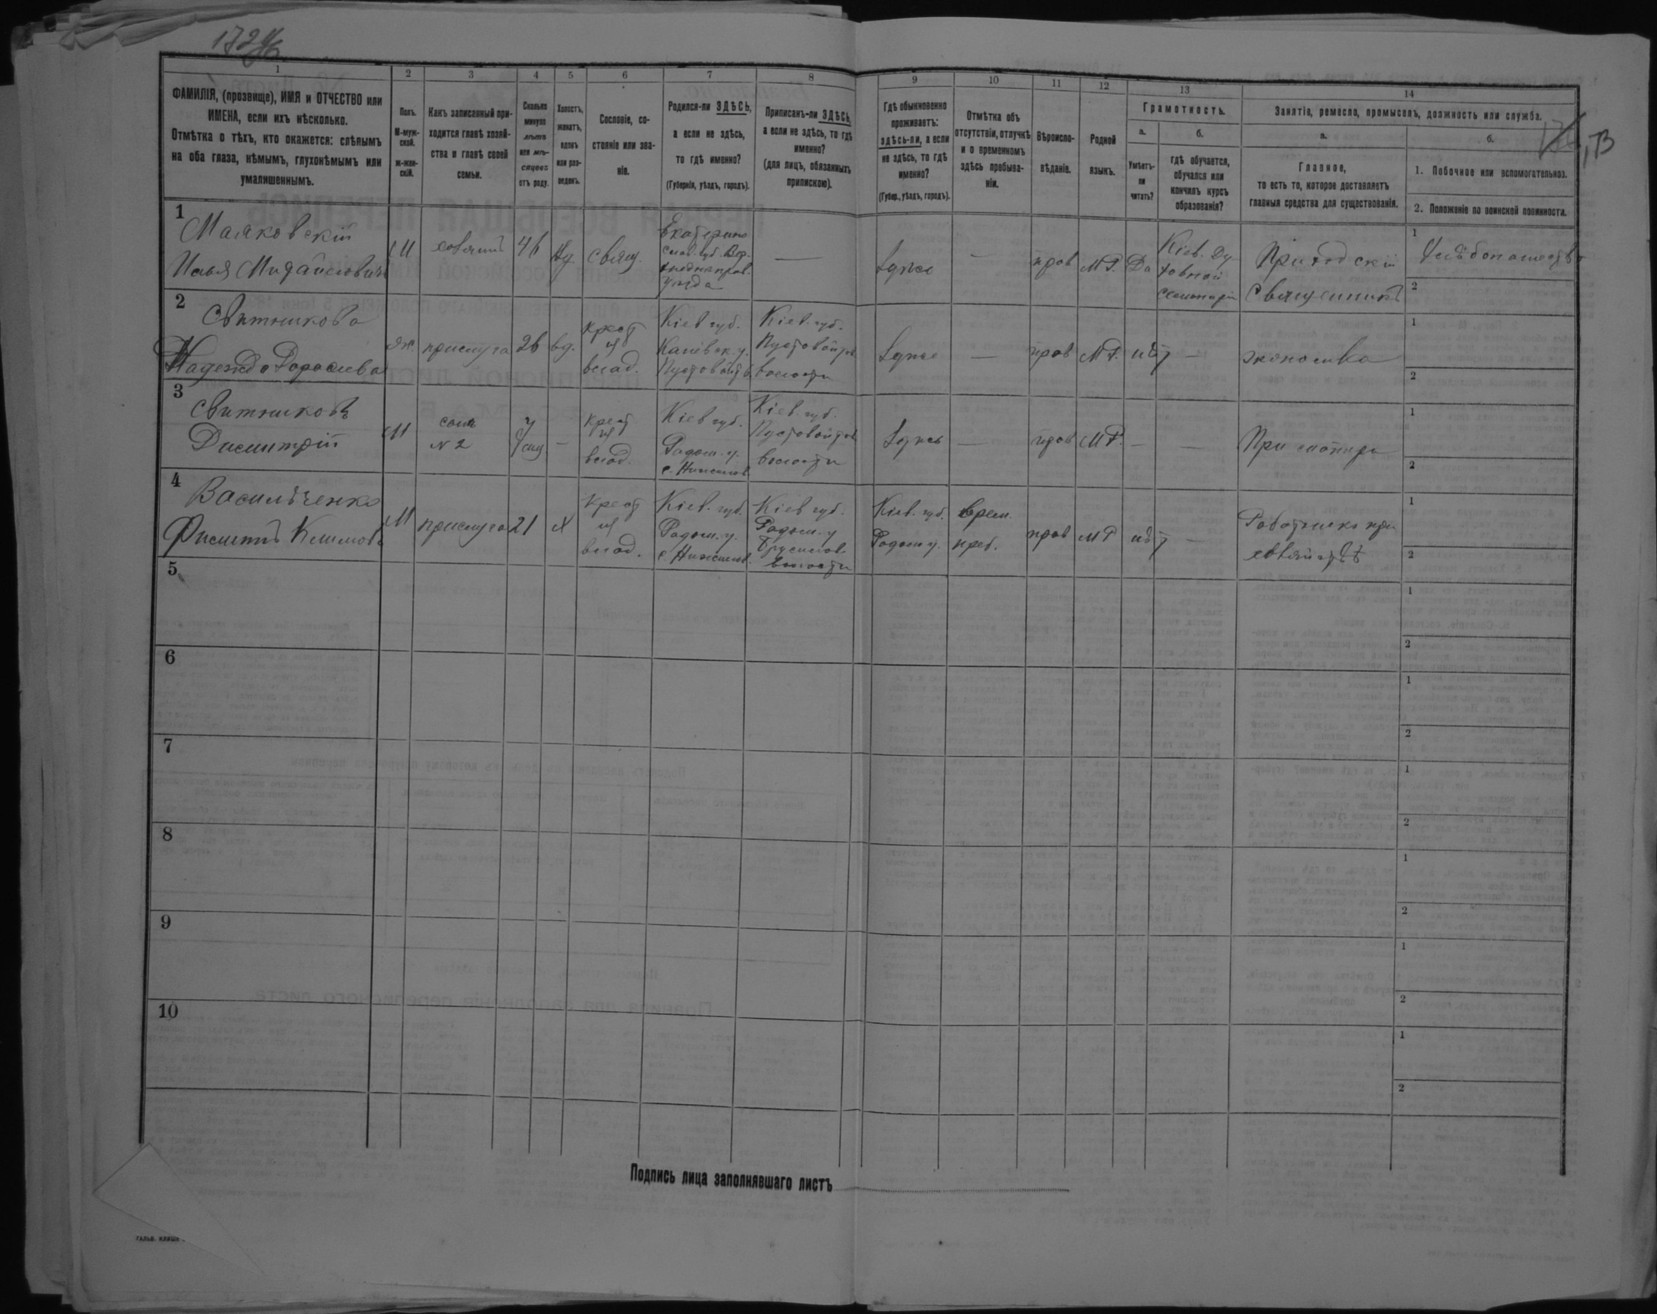 172
1
2
3
4
5
6
7
8
9
10
11
12
13
14
ФАМИЛІЯ, (прозвище), ИМЯ и ОТЧЕСТВО или
ИМЕНА, если ихъ нѣсколько.
Отмѣтка о тѣхъ, кто окажется: слѣпымъ
на оба глаза, нѣмымъ, глухонѣмымъ или
умалишеннымъ.
Полъ.
М-муж-
ской.
ж-жен-
скій.
Какъ записанный при-
ходится главѣ хозяй-
ства и главѣ своей
семьи.
Сколько
минуло
лѣтъ
или мѣ-
сяцевъ
отъ роду.
Холостъ,
женатъ,
вдовъ
или раз-
веденъ.
Сословіе, со-
стояніе или зва-
ніе.
Родился-ли ЗДѢСЬ,
а если не здѣсь,
то гдѣ именно?
(Губернія, уѣздъ, городъ).
Приписанъ-ли ЗДѢСЬ,
а если не здѣсь, то гдѣ
именно?
(для лицъ, обязанныхъ
припискою).
Гдѣ обыкновенно
проживаетъ:
здѣсь-ли, а если
не здѣсь, то гдѣ
именно?
(Губер., уѣздъ, городъ).
Отмѣтка объ
отсутствіи, отлучкѣ
и о временномъ
здѣсь пребыва-
ніи.
Вѣроиспо-
вѣданіе.
Родной
языкъ.
Грамотность.
а.
б.
Умѣетъ-
ли
читать?
гдѣ обучается,
обучался или
кончилъ курсъ
образованія?
Занятіе, ремесло, промыселъ, должность или служба.
а.
б.
Главное,
то есть то, которое доставляетъ
главныя средства для существованія.
1. Побочное или вспомогательное.
2. Положеніе по воинской повинности.
1
Маяковскій
Илья Михайловичъ
М
хозяинъ
46
вд
свящ
Екатерино
слав. губ. Вер.
хнеднѣпров.
уѣзда
—
Здѣсь
—
прав
М.Р.
Да
Кіев. Ду
ховной
семинаріи
Приходскій
Священникъ
1
2
2
Свитникова
Надежда
ж
прислуга
26
вд.
крест
изъ
влад.
Кіев губ.
Канівск. у.
Кіев. губ.
волости
Здѣсь
—
прав
М.Р.
нѣт
—
экономка
1
2
3
Свитниковъ
Димитрій
М
сынъ
№ 2
—
крест
из
влад.
Кіев губ.
Радом. у.
Кіев. губ.
волости
Здѣсь
—
прав
М.Р.
—
—
При матери
1
2
4
Васильченко
Климовъ
М
прислуга
21
х
крест
из
влад.
Кіев. губ.
Радом. у.
Кіев губ.
Радом. у
Брусилов.
волости
Кіев. губ.
Радом у.
Врем.
преб.
прав
М Р
нѣт
—
Работникъ при
хозяйствѣ
1
2
5
1
2
6
1
2
7
1
2
8
1
2
9
1
2
10
1
2
Подпись лица заполнявшаго листъ